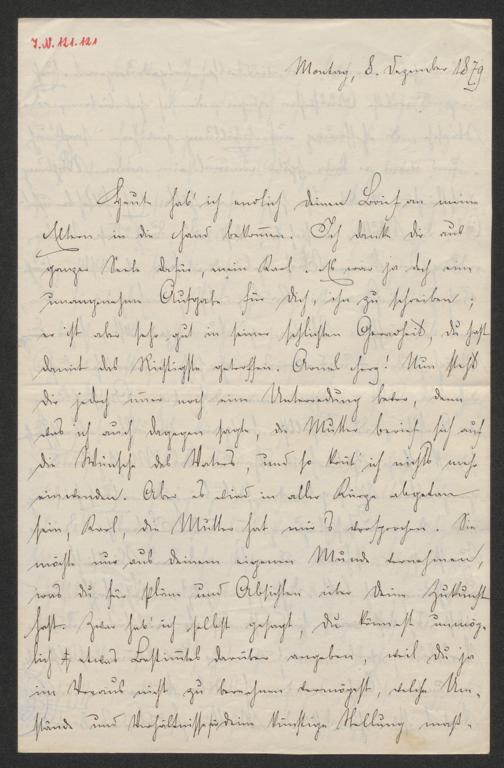 I.N. 121.121
Montag, 8. Dezember 1879
Heute hab' ich endlich Deinen Brief an meine
Eltern in die Hand bekommen. Ich danke Dir aus
ganzer Seele dafür, mein Karl. Es war ja doch eine
unangenehme Aufgabe für Dich, ihn zu schreiben;
er ist aber sehr gut in seiner schlichten Geradheit, Du hast
damit das Richtigste getroffen. Armes Herz! Nun steht
Dir jedoch immer noch eine Unterredung bevor, denn
was ich auch dagegen sagte, die Mutter berief sich auf
die Wünsche des Vaters, und so konnt' ich nichts mehr
einwenden. Aber es wird in aller Kürze abgetan
sein, Karl, die Mutter hat mir's versprochen. Sie
möchte nur aus Deinem eigenen Munde vernehmen,
was Du für Pläne und Absichten über Deine Zukunft
hast. Zwar hab' ich selbst gesagt, Du könntest unmög-
lich etwas Bestimmtes darüber angeben, weil Du ja
im Voraus nicht zu berechnen vermögest, welche Um-
stände und Verhältnisse für Deine künftige Stellung maß-